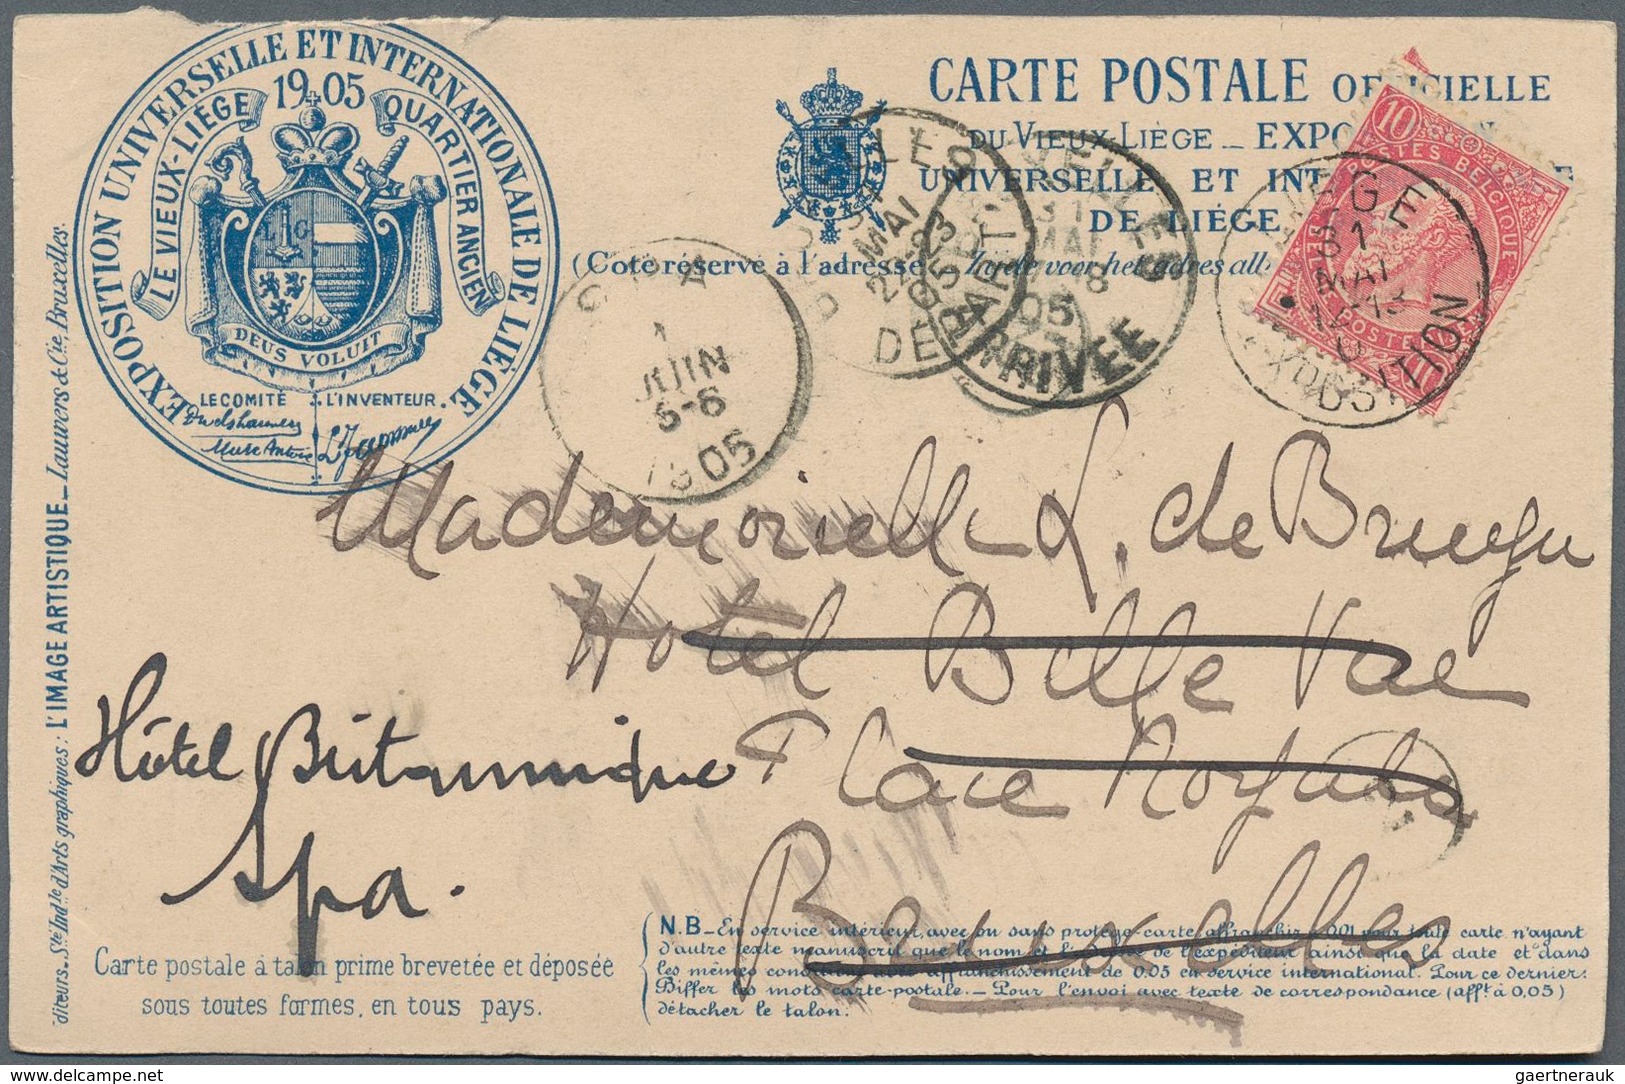 EXPOSITION UNIVERSELLE ET INTERNATIONALE DE LIÈGE
1905
LE VIEUX-LIÈGE QUARTIER ANCIEN
L G
DEUS VOLUIT
LE COMITÉ L'INVENTEUR.
CARTE POSTALE OFFICIELLE
DU VIEUX-LIÈGE _ EXPO
UNIVERSELLE ET INT
DE LIÉGE.
(Coté réservé à l'adresse voor het adres
10
POSTES BELGIQUE
POSTERIJEN
LIÈGE
31
MAI
12-13
EXPOSITION
BRUXELLES
31
MAI
22-23
05
DEPART
BRUXELLES
31
MAI
8
05
ARRIVÉE
SPA
1
JUIN
5-6
1905
Mademoiselle L. de Bruyn
Hotel Belle Vue
Place Royale
Bruxelles
Hôtel Britannique
Spa.
Carte postale à talon prime brevetée et déposée
sous toutes formes, en tous pays.
N.B_ En service intérieur, avec ou sans protège-carte, affranchir à 0,01 pour toute carte n'ayant
d'autre texte manuscrit que le nom et l'adresse de l'expéditeur ainsi que la date et dans
les mêmes conditions avec affranchissement de 0.05 en service international. Pour ce dernier:
Biffer les mots carte-postale. _ Pour l'envoi avec texte de correspondance (afft à 0,05)
détacher le talon.
diteurs_ Sté Indle d'Arts graphiques: L'IMAGE ARTISTIQUE_ Lauwers & Cie, Bruxelles.
www.delcampe.net
gaertnerauk